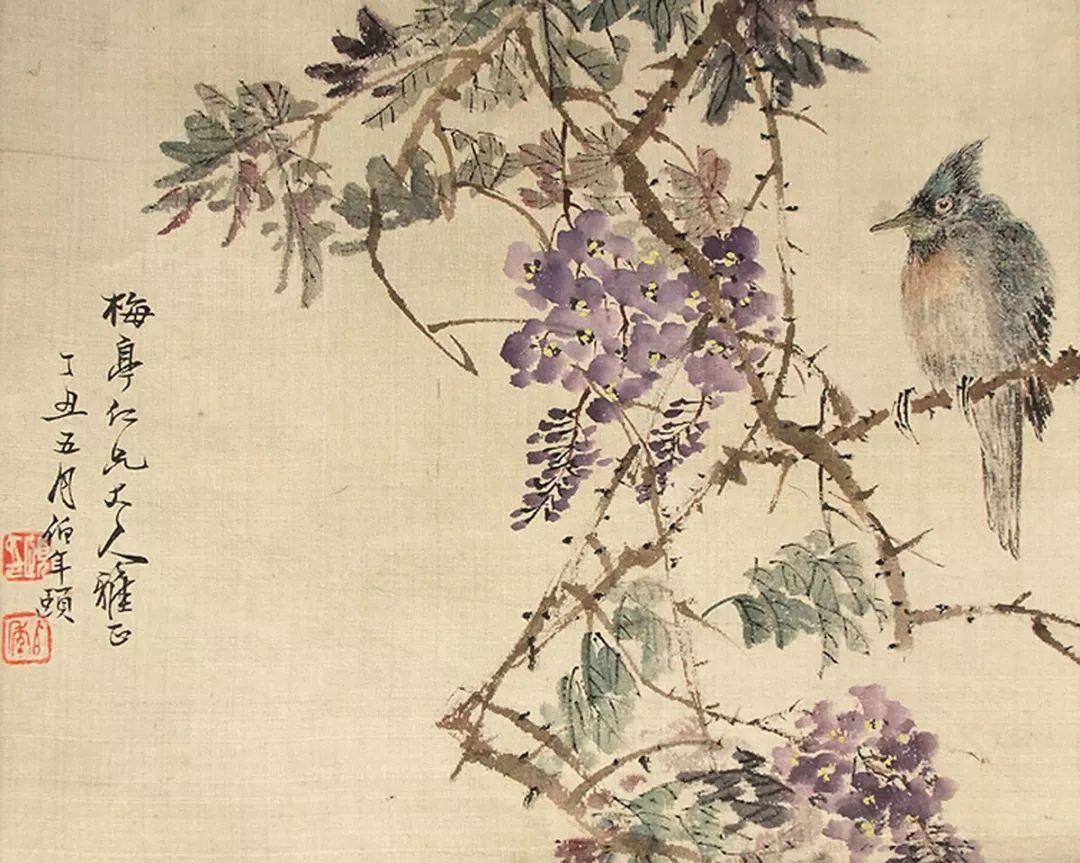 梅亭仁兄大人雅正
丁丑五月伯年頤